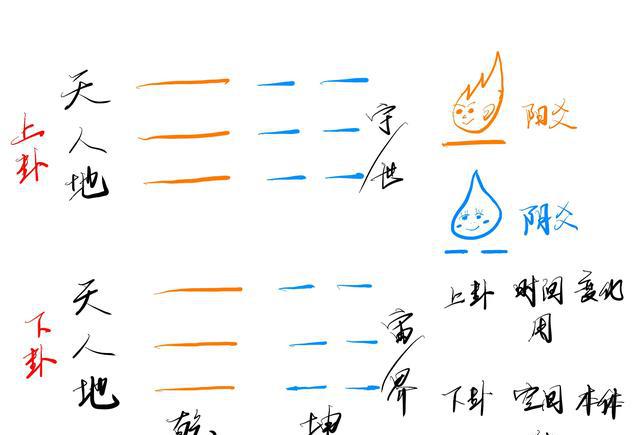 上卦
天
人
地
宇/世
阳爻
阴爻
下卦
天
人
地
宙/界
上卦 时间 变化
用
下卦 空间 本体
乾 坤